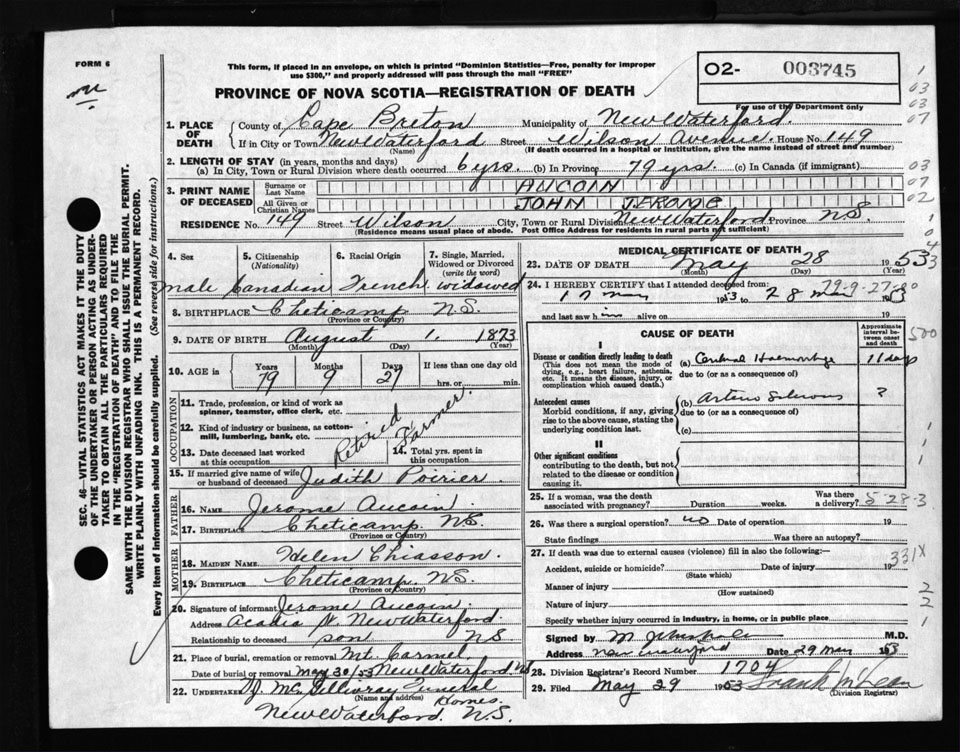 FORM 6
This form, if placed in an envelope, on which is printed "Dominion Statistics—Free, penalty for improper
use $300," and properly addressed will pass through the mail "FREE"
O2- 003745
PROVINCE OF NOVA SCOTIA—REGISTRATION OF DEATH
For use of the Department only
1. PLACE OF DEATH
County of Cape Breton Municipality of New Waterford.
If in City or Town New Waterford Street Wilson Avenue. House No. 149
(Name) (If death occurred in a hospital or institution, give the name instead of street and number)
2. LENGTH OF STAY (in years, months and days)
(a) In City, Town or Rural Division where death occurred 6 yrs. (b) In Province 79 yrs. (c) In Canada (if immigrant)
3. PRINT NAME OF DECEASED
Surname or Last Name AUCOIN
All Given or Christian Names JOHN JEROME
RESIDENCE No. 149 Street Wilson City, Town or Rural Division New Waterford Province N.S.
(Residence means usual place of abode. Post Office Address for residents in rural parts not sufficient)
4. Sex 5. Citizenship (Nationality) 6. Racial Origin 7. Single, Married, Widowed or Divorced (write the word)
male Canadian French widowed
8. BIRTHPLACE Cheticamp N.S.
(Province or Country)
9. DATE OF BIRTH August 1. 1873
(Month) (Day) (Year)
10. AGE in Years Months Days If less than one day old
79 9 27 hrs. or min.
OCCUPATION
11. Trade, profession, or kind of work as
spinner, teamster, office clerk, etc.
12. Kind of industry or business, as cotton-
mill, lumbering, bank, etc.
Retired Farmer.
13. Date deceased last worked
at this occupation
14. Total yrs. spent in
this occupation
15. If married give name of wife
or husband of deceased Judith Poirier.
FATHER
16. NAME Jerome Aucoin.
17. BIRTHPLACE Cheticamp. N.S.
(Province or Country)
MOTHER
18. MAIDEN NAME Helen Chiasson.
19. BIRTHPLACE Cheticamp. N.S.
(Province or Country)
20. Signature of informant Jerome Aucoin.
Address Acadia St. New Waterford
Relationship to deceased son N.S
21. Place of burial, cremation or removal Mt. Carmel
Date of burial or removal May 30/53 New Waterford N.S
22. UNDERTAKER McGillivray Funeral
(Name and address) Homes.
New Waterford. N.S.
MEDICAL CERTIFICATE OF DEATH
23. DATE OF DEATH May 28 1953
(Month) (Day) (Year)
24. I HEREBY CERTIFY that I attended deceased from:
17 May 1953 to 28 May 1953
and last saw him alive on 19
79-9-27-20
CAUSE OF DEATH
Approximate interval between onset and death
I
Disease or condition directly leading to death
(This does not mean the mode of
dying, e.g., heart failure, asthenia,
etc. It means the disease, injury, or
complication which caused death.)
(a) Cerebral Haemorrhage 11 days
due to (or as a consequence of)
Antecedent causes
Morbid conditions, if any, giving
rise to the above cause, stating the
underlying condition last.
(b) Arterio Sclerosis ?
due to (or as a consequence of)
(c)
II
Other significant conditions
contributing to the death, but not
related to the disease or condition
causing it.
25. If a woman, was the death
associated with pregnancy? Duration weeks. Was there a delivery?
5-28-3
26. Was there a surgical operation? no Date of operation 19
State findings Was there an autopsy?
27. If death was due to external causes (violence) fill in also the following:—
Accident, suicide or homicide? Date of injury 19
(State which)
331X
Manner of injury
(How sustained)
Nature of injury
Specify whether injury occurred in industry, in home, or in public place
Signed by M.D.
Address New Waterford Date 29 May 1953
28. Division Registrar's Record Number 1704
29. Filed May 29 1953 Frank McLean
(Division Registrar)
SEC. 46—VITAL STATISTICS ACT MAKES IT THE DUTY
OF THE UNDERTAKER OR PERSON ACTING AS UNDER-
TAKER TO OBTAIN ALL THE PARTICULARS REQUIRED
IN THE "REGISTRATION OF DEATH" AND TO FILE THE
SAME WITH THE DIVISION REGISTRAR WHO SHALL ISSUE THE BURIAL PERMIT.
WRITE PLAINLY WITH UNFADING INK. THIS IS A PERMANENT RECORD.
Every item of information should be carefully supplied. (See reverse side for instructions.)
1
03
03
07
03
07
02
1
0
4
3
500
1
1
1
2
2
1